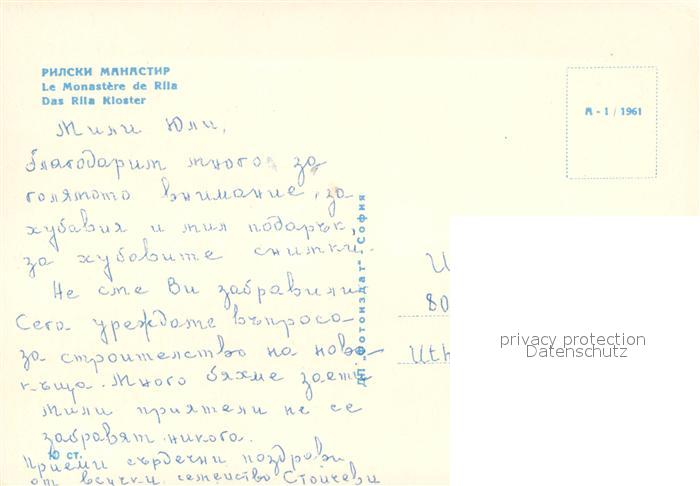 РИЛСКИ МАНАСТИР
Le Monastère de Rila
Das Rila Kloster
М - 1 / 1961
Мили Юли,
благодарим много за
голямото внимание, за
хубавия и мил подарък,
за хубавите снимки.
Не сме Ви забравили
Сега уреждаме въпроса
за строителство на нова
къща. Много бяхме заети
Мили приятели не се
забравят никога.
Приеми сърдечни поздрави
от всички семейство Стойчеви
10 ст.
ДП „Фотоиздат" - София
80
Uth
privacy protection
Datenschutz